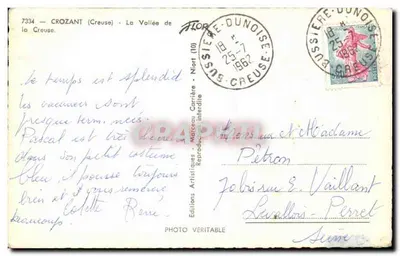 7334 — CROZANT (Creuse) - La Vallée de
la Creuse.
BUSSIERE-DUNOISE
18 H
25-7
1962
CREUSE
BUSSIERE-DUNOISE
18 H
25-7
1962
CREUSE
Le temps est splendide
les vacances sont
presque terminées.
Pascal est très
dans son petit costume
bleu, il pousse toujours
bien et
beaucoup.
Colette René
Editions Artistiques - Marceau Carrière - Niort (10)
Reproduction interdite
Monsieur et Madame
Pétron
70 bis rue E. Vaillant
Levallois-Perret
Seine
PHOTO VERITABLE
CPRAMA